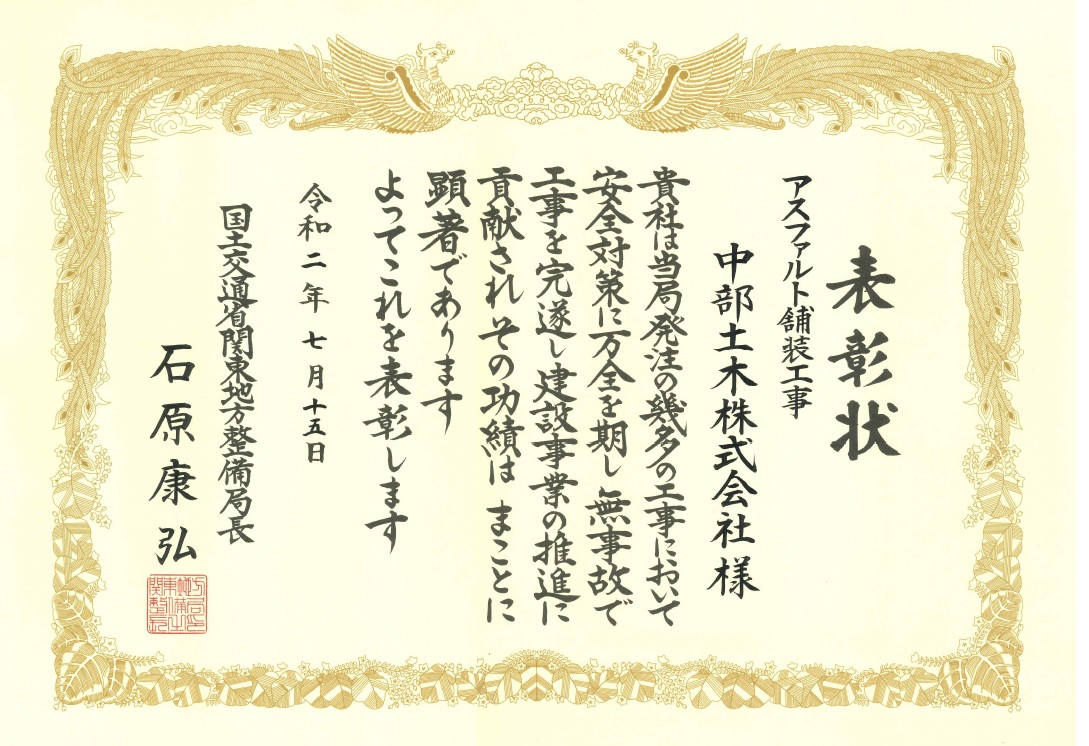 表彰状
アスファルト舗装工事
中部土木株式会社様
貴社は当局発注の幾多の工事において
安全対策に万全を期し無事故で
工事を完遂し建設事業の推進に
貢献されその功績はまことに
顕著であります
よってこれを表彰します
令和二年七月十五日
国土交通省関東地方整備局長
石原康弘